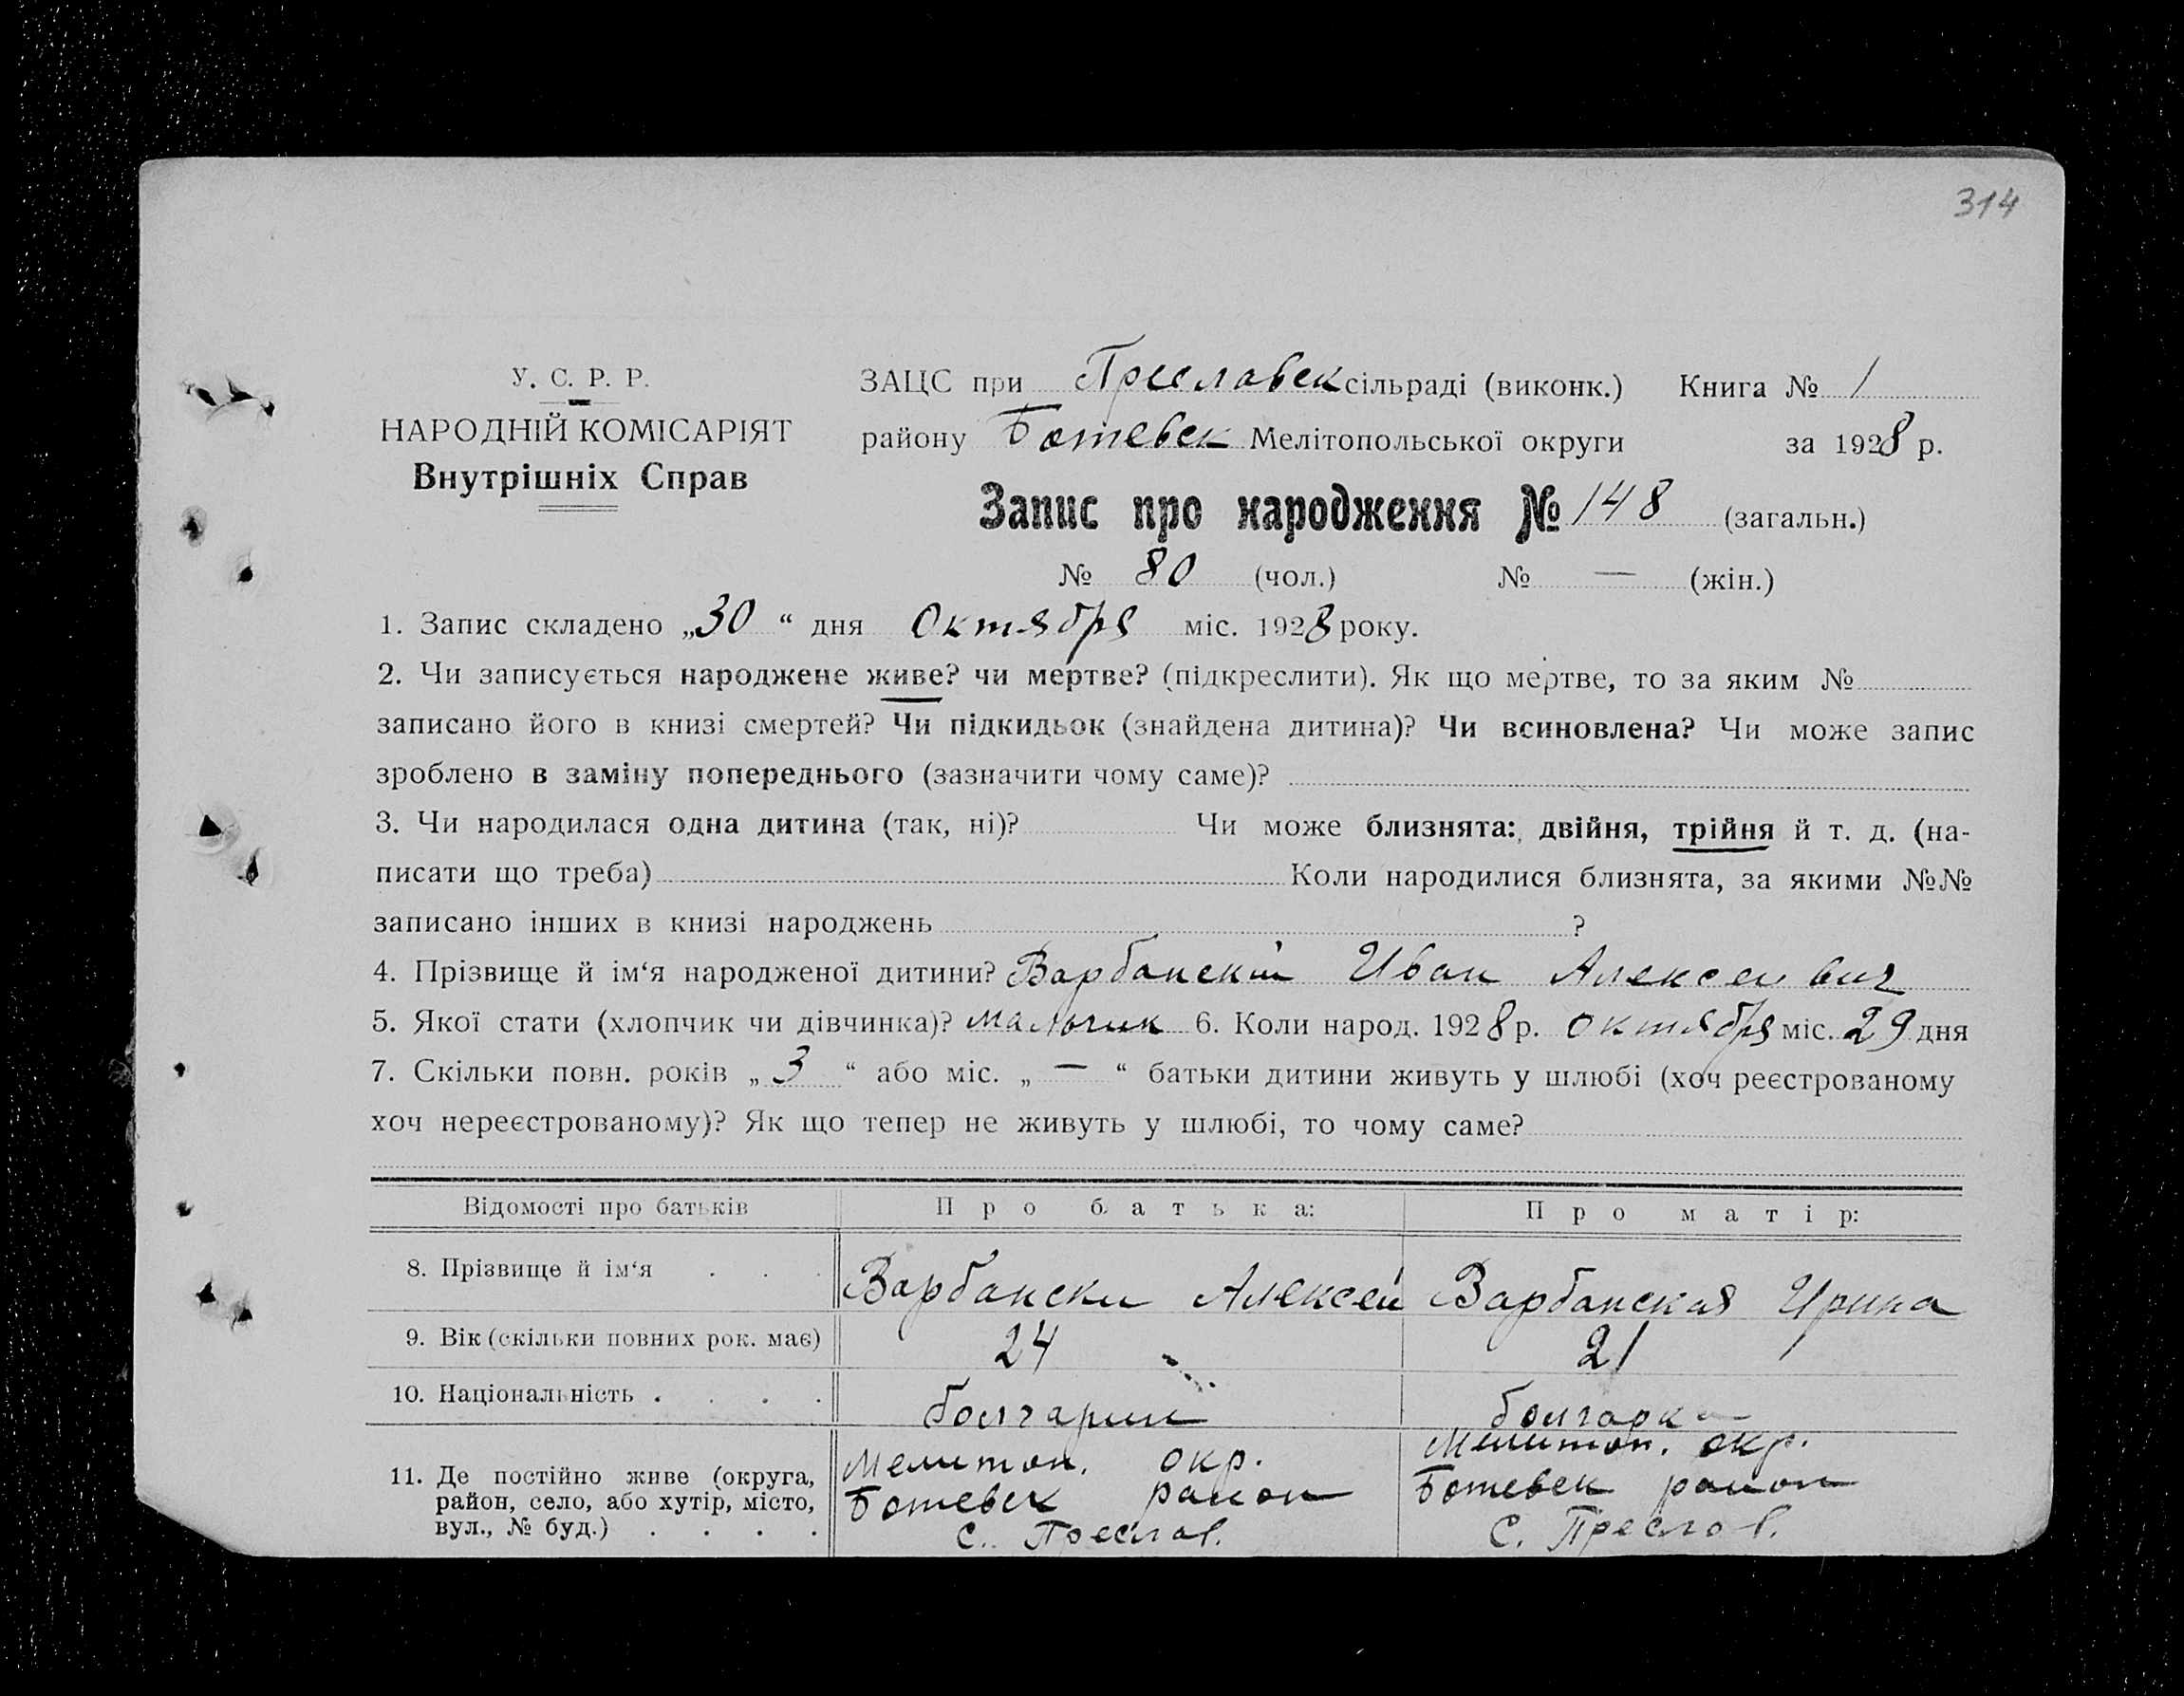 314
У. С. Р. Р.
НАРОДНІЙ КОМІСАРІЯТ
Внутрішніх Справ
ЗАЦС при Преславск сільраді (виконк.) Книга № 1
району Ботевск Мелітопольської округи за 1928 р.
Запис про народження № 148 (загальн.)
№ 80 (чол.) № — (жін.)
1. Запис складено „30“ дня Октября міс. 1928 року.
2. Чи записується народжене живе? чи мертве? (підкреслити). Як що мертве, то за яким №
записано його в книзі смертей? Чи підкидьок (знайдена дитина)? Чи всиновлена? Чи може запис
зроблено в заміну попереднього (зазначити чому саме)?
3. Чи народилася одна дитина (так, ні)? Чи може близнята: двійня, трійня й т. д. (на-
писати що треба) Коли народилися близнята, за якими №№
записано інших в книзі народжень ?
4. Прізвище й ім‘я народженої дитини? Варбанский Иван Алексеевич
5. Якої стати (хлопчик чи дівчинка)? мальчик 6. Коли народ. 1928 р. октября міс. 29 дня
7. Скільки повн. років „3“ або міс. „—“ батьки дитини живуть у шлюбі (хоч реєстрованому
хоч нереєстрованому)? Як що тепер не живуть у шлюбі, то чому саме?
Відомості про батьків Про батька: Про матір:
8. Прізвище й ім‘я . . . Варбански Алексей Варбанская Ирина
9. Вік (скільки повних рок. має) 24 21
10. Національність . . . . болгарин болгарка
11. Де постійно живе (округа, Мелитоп. окр. Мелитоп. окр.
район, село, або хутір, місто, Ботевск район Ботевск район
вул., № буд.) . . . . С. Преслав. С. Преслав.